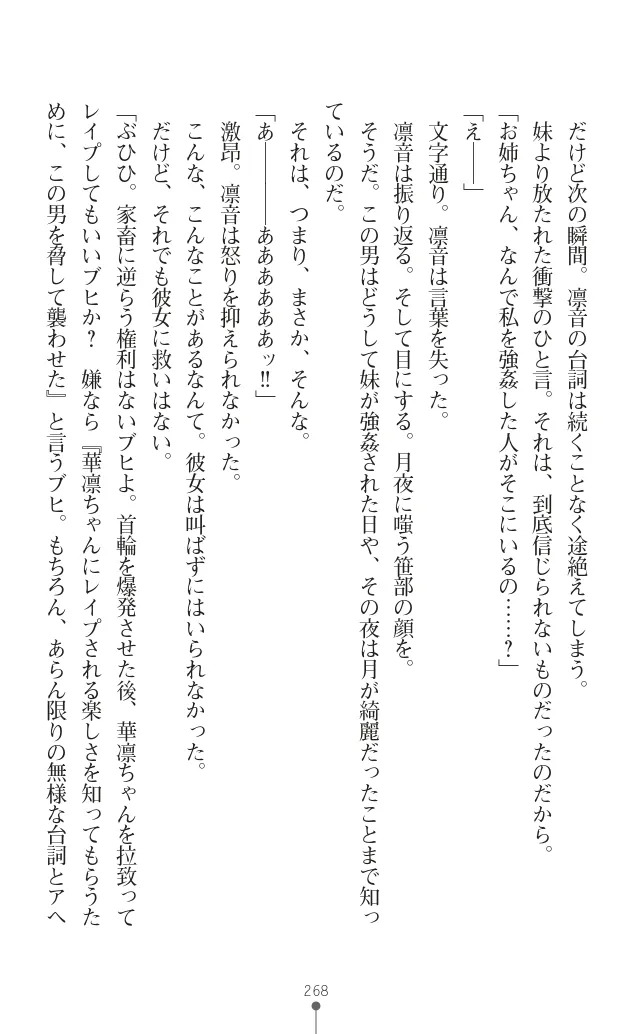 だけど次の瞬間。凛音の台詞は続くことなく途絶えてしまう。
　妹より放たれた衝撃のひと言。それは、到底信じられないものだったのだから。
「お姉ちゃん、なんで私を強姦した人がそこにいるの……？」
「え――」
　文字通り。凛音は言葉を失った。
　凛音は振り返る。そして目にする。月夜に嗤う笹部の顔を。
　そうだ。この男はどうして妹が強姦された日や、その夜は月が綺麗だったことまで知っ
ているのだ。
　それは、つまり、まさか、そんな。
「あ――――ああああああッ‼」
　激昂。凛音は怒りを抑えられなかった。
　こんな、こんなことがあるなんて。彼女は叫ばずにはいられなかった。
　だけど、それでも彼女に救いはない。
「ぶひひ。家畜に逆らう権利はないブヒよ。首輪を爆発させた後、華凛ちゃんを拉致って
レイプしてもいいブヒか？　嫌なら『華凛ちゃんにレイプされる楽しさを知ってもらうた
めに、この男を脅して襲わせた』と言うブヒ。もちろん、あらん限りの無様な台詞とアヘ
268